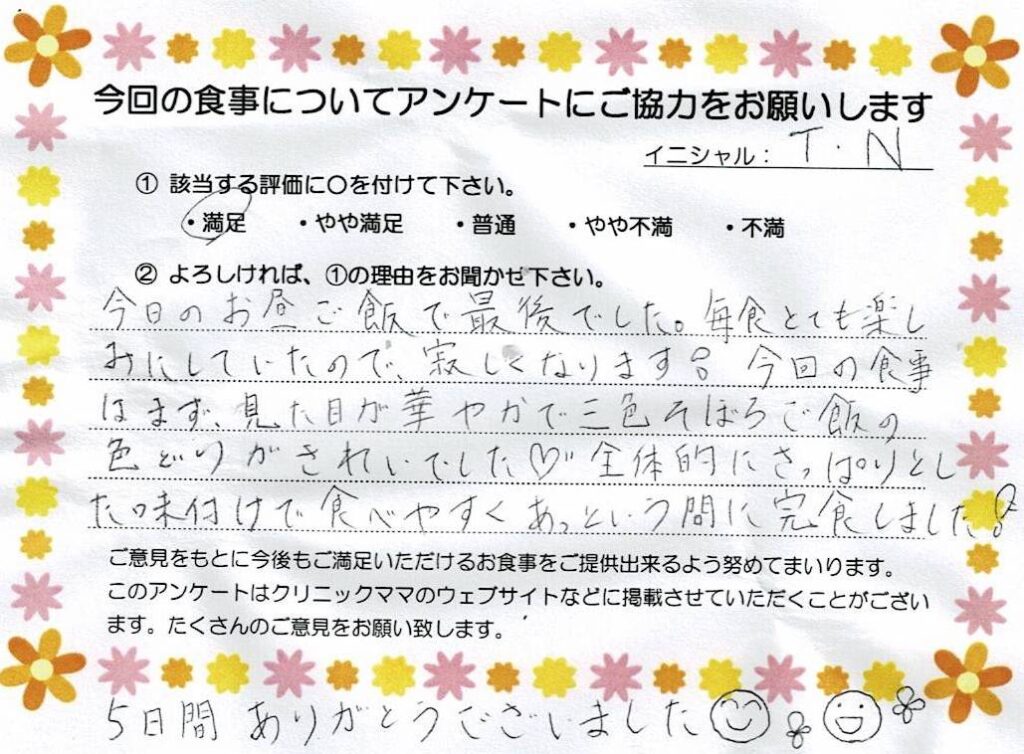 今回の食事についてアンケートにご協力をお願いします
イニシャル： T.N
① 該当する評価に〇を付けて下さい。
・満足 ・やや満足 ・普通 ・やや不満 ・不満
② よろしければ、①の理由をお聞かせ下さい。
今日のお昼ご飯で最後でした。毎食とても楽し
みにしていたので、寂しくなります 今回の食事
はまず、見た目が華やかで三色そぼろご飯の
色どりがきれいでした♡ 全体的にさっぱりとし
た味付けで食べやすくあっという間に完食しました!
ご意見をもとに今後もご満足いただけるお食事をご提供出来るよう努めてまいります。
このアンケートはクリニックママのウェブサイトなどに掲載させていただくことがござい
ます。たくさんのご意見をお願い致します。
5日間 ありがとうございました